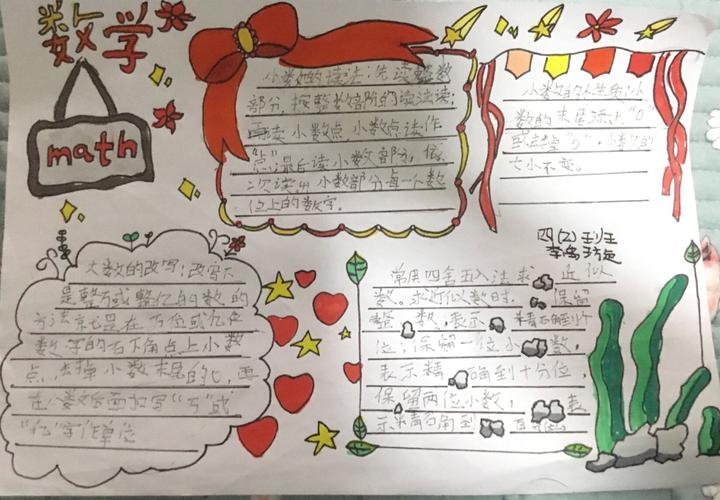 数学
math
小数的读法:先读整数
部分,按整数部分的读法读
再读小数点,小数点读作
“点”最后读小数部分,依
次读出小数部分每一个数
位上的数字。
小数的性质:小
数的末尾添上“0”
或去掉“0”,小数的
大小不变。
四(2)班
李
大数的改写:改写不
是整万或整亿的数的
方法就是在万位或亿位
数字的右下角点上小数
点,去掉小数末尾的0,再
在小数后面加写“万”或
“亿”字作单位
常用四舍五入法求 近似
数。求近似数时, 保留
整 数,表示 精确到个
位;保留一位小 数,
表示精 确到十分位,
保留两位小数, 表
示精确到 百分位。